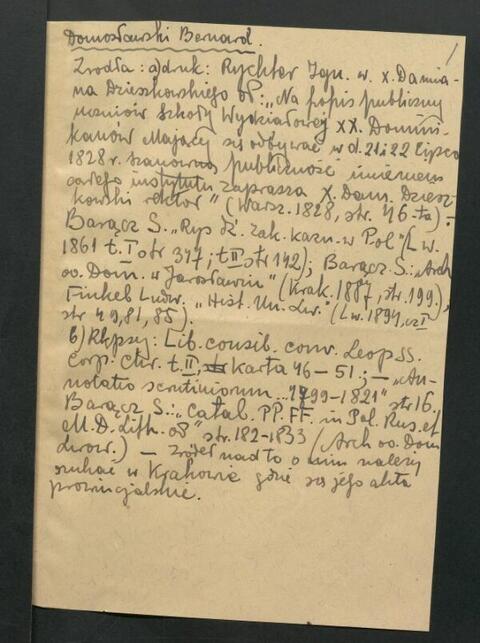 Domosławski Bernard.
1
Zrodła: a) druk: Rychter Ign. w. x. Damia-
na Dzieszkowskiego op: „Na popis publiczny
uczniów Szkoły Wydziałowej XX. Domini-
kanów Mający się odbywać w d. 21 i 22 lipca
1828 r. szanowną publiczność imieniem
całego instytutu zaprasza X. Dam. Dziesz-
kowski rektor" (Warsz. 1828, str. 46-ta) -
Barącz S. „Rys dź. zak. kazn. w Pol" (L w.
1861 t. I str 347; t II str 142); Barącz S.: „Arch
oo. Dom. w Jarosławiu" (Krak. 1887, str. 199.),
Finkel Ludw. „Hist. Un. Lw." (Lw. 1894, cz I
str 49, 81, 85).
b) Rkpsy: Lib. consil. conv. Leop SS.
Corp. Chr. t. II, karta 46 - 51; - „An-
notatio scrutiniorum ... 1799-1821" str 16.
Barącz S.: „Catal. PP. FF. in Pol. Rus. et
M. D. Lith. op" str. 182-1833 (Arch oo. Dom
Lwow.) - źródeł nadto o nim należy
szukać w Krakowie gdzie są jego akta
prowincjalskie.